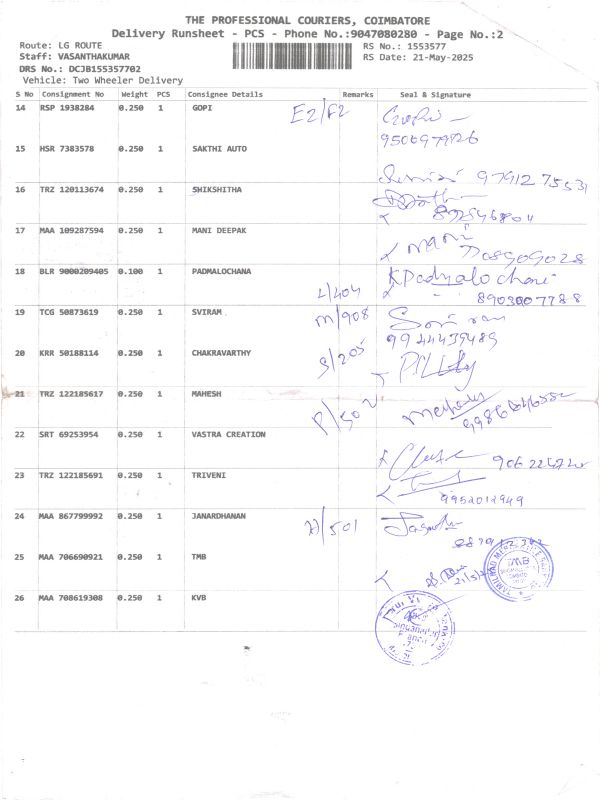 THE PROFESSIONAL COURIERS, COIMBATORE
Delivery Runsheet - PCS - Phone No.:9047080280 - Page No.:2
Route: LG ROUTE
RS No.: 1553577
Staff: VASANTHAKUMAR
RS Date: 21-May-2025
DRS No.: DCJB155357702
Vehicle: Two Wheeler Delivery
S No Consignment No Weight PCS Consignee Details Remarks Seal & Signature
14 RSP 1938284 0.250 1 GOPI E2/F2
15 HSR 7383578 0.250 1 SAKTHI AUTO
16 TRZ 120113674 0.250 1 SHIKSHITHA
17 MAA 109287594 0.250 1 MANI DEEPAK mani
18 BLR 9000209405 0.100 1 PADMALOCHANA
L/404 8903007788
19 TCG 50873619 0.250 1 SVIRAM M/908
9944439489
20 KRR 50188114 0.250 1 CHAKRAVARTHY S/205
21 TRZ 122185617 0.250 1 MAHESH P/502
22 SRT 69253954 0.250 1 VASTRA CREATION
23 TRZ 122185691 0.250 1 TRIVENI
9952012949
24 MAA 867799992 0.250 1 JANARDHANAN
25 MAA 706690921 0.250 1 TMB TMB
26 MAA 708619308 0.250 1 KVB